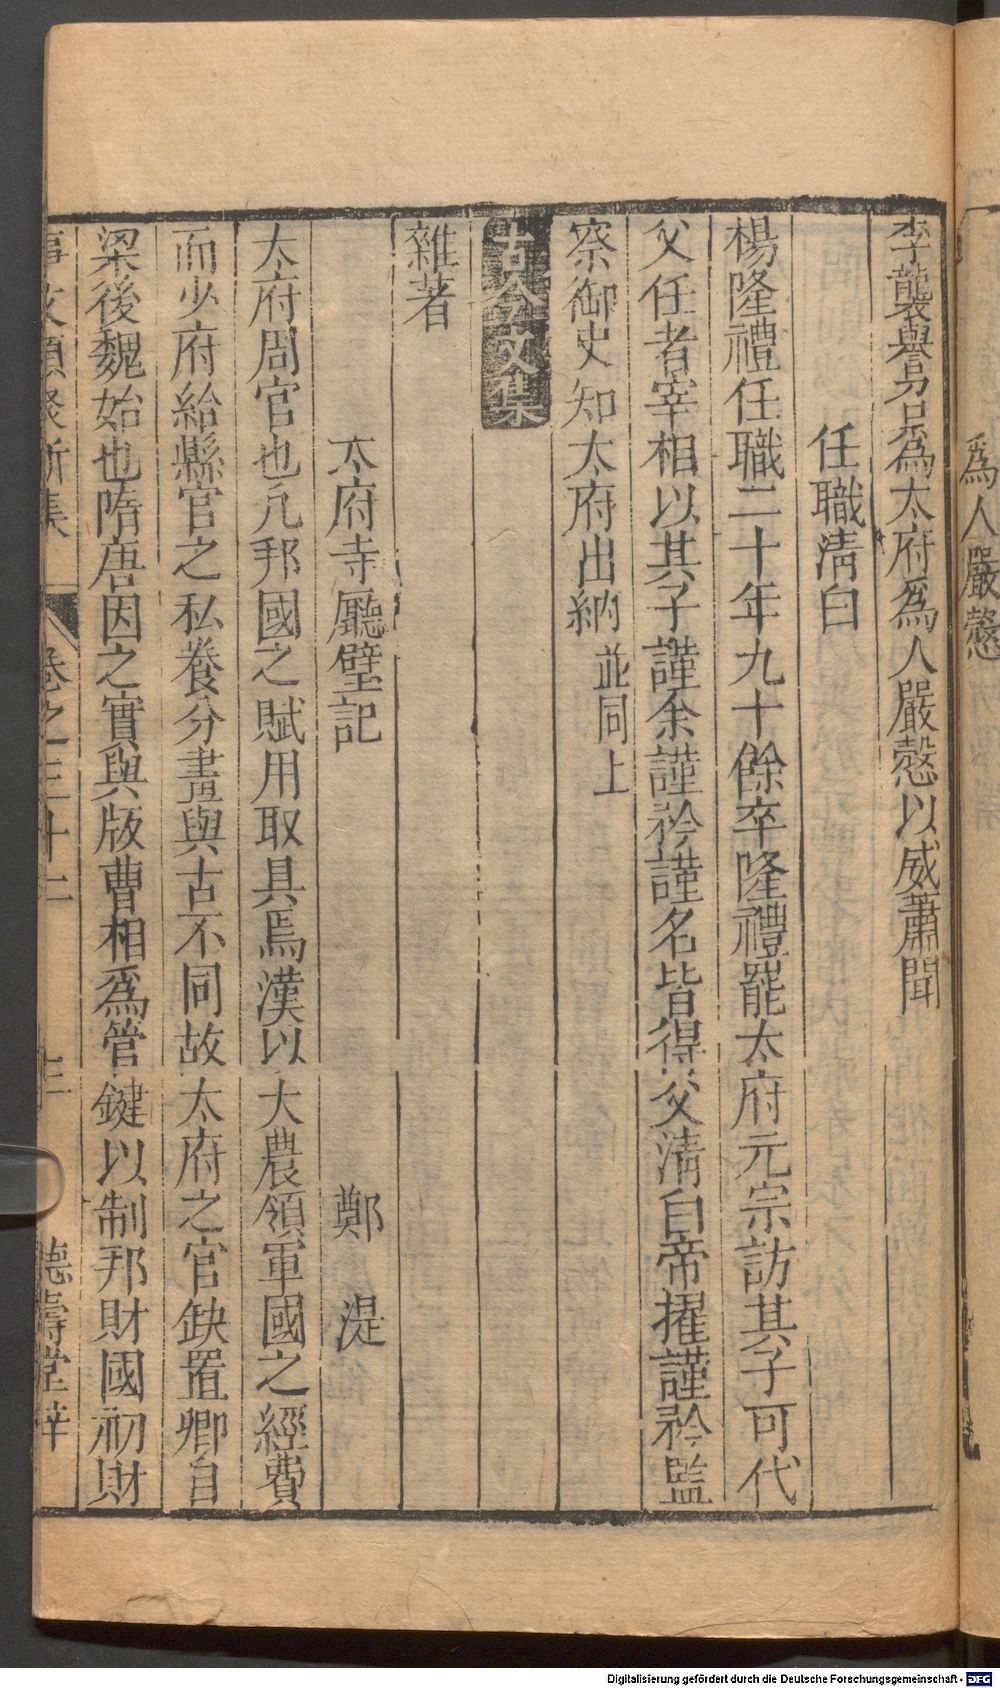 為人嚴愨
李襲譽為太府為人嚴愨以威肅聞
任職清白
楊隆禮任職二十年九十餘卒隆禮罷太府元宗訪其子可代
父任者宰相以其子謹余謹矜謹名皆得父清白帝擢謹矜監
察御史知太府出納並同上
古今文集
雜著
太府寺廳壁記 鄭湜
太府周官也凡邦國之賦用取具焉漢以大農領軍國之經費
而少府給縣官之私養分畫與古不同故太府之官缺置卿自
梁後魏始也隋唐因之實與版曹相為管鍵以制邦財國初財
事文類聚新集 卷之三十二 三 德壽堂梓
Digitalisierung gefördert durch die Deutsche Forschungsgemeinschaft - DFG